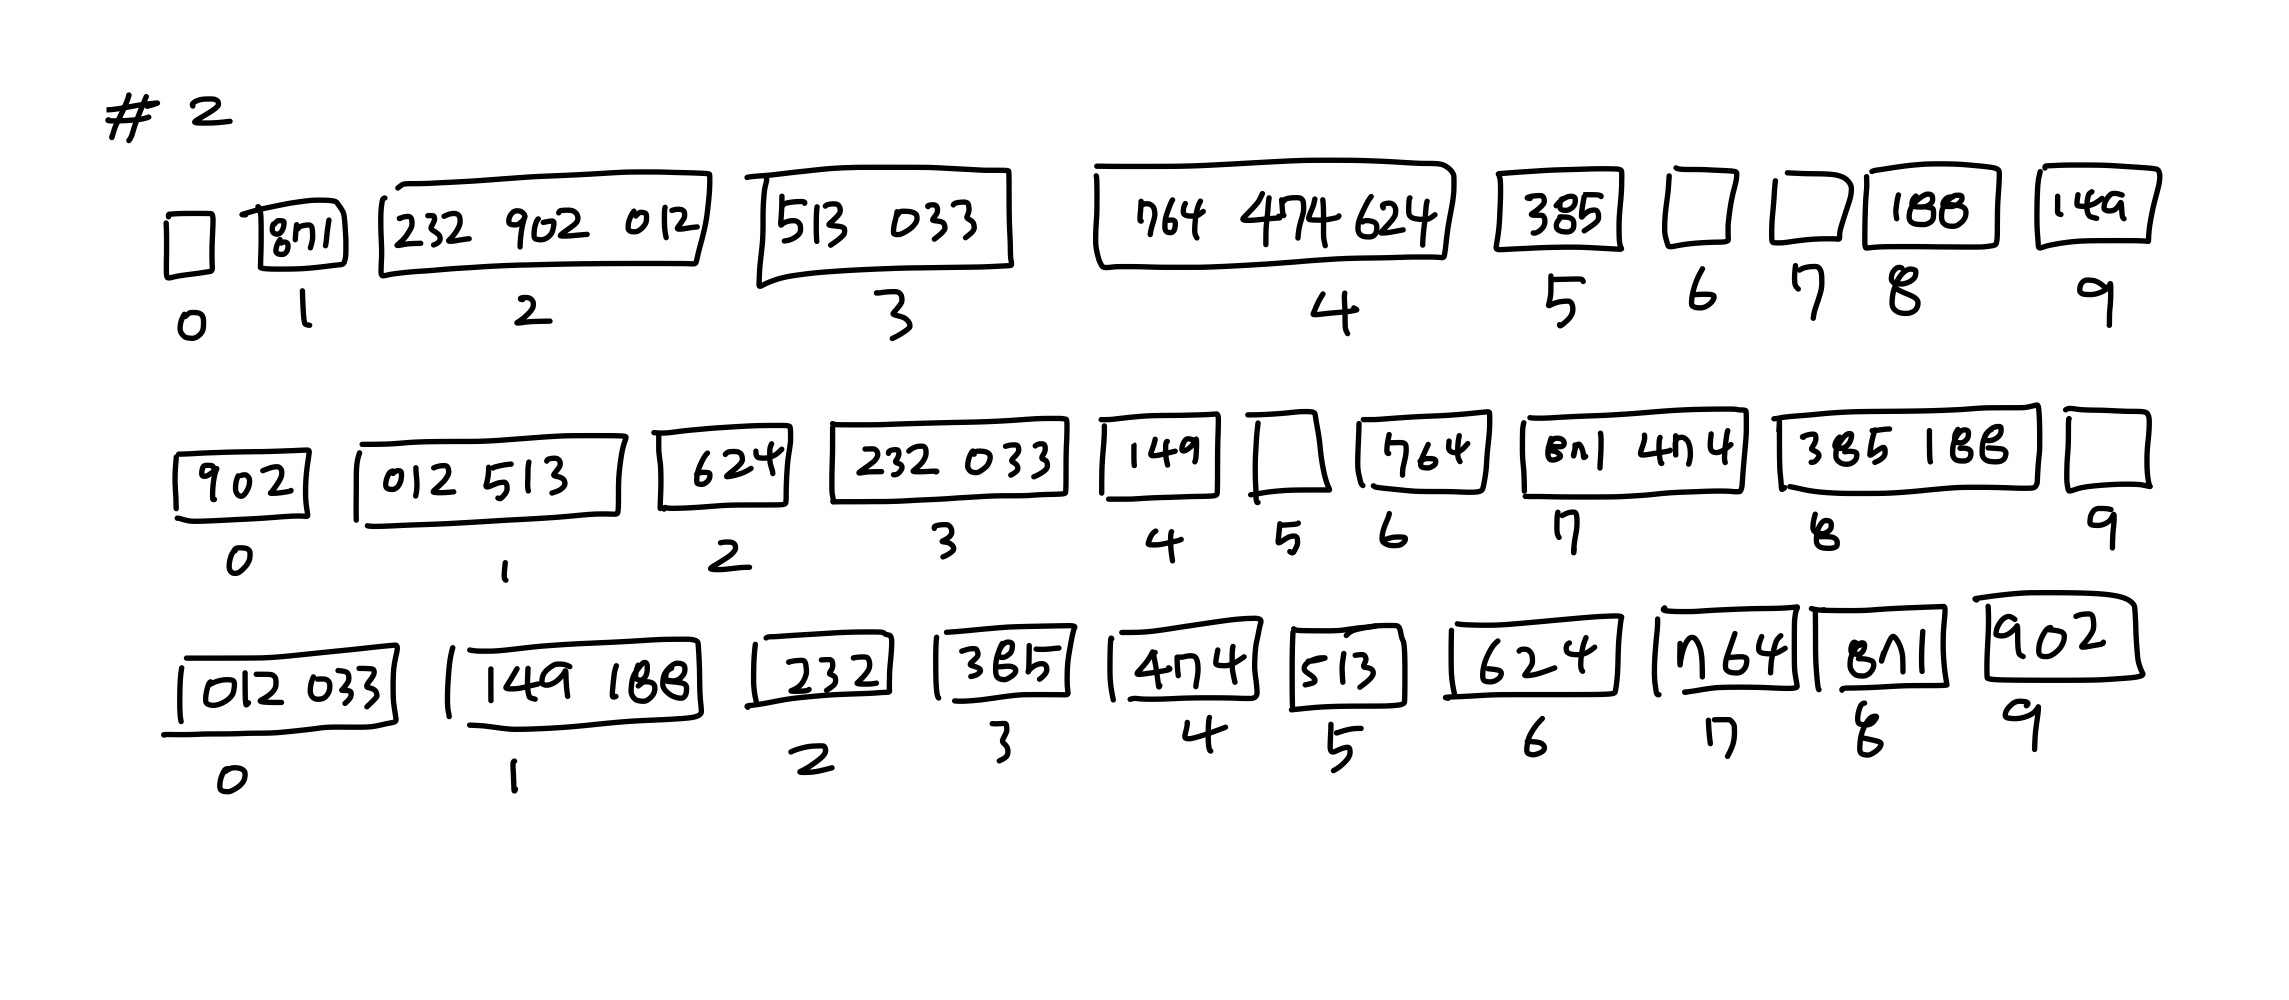 # 2
871 232 902 012 513 033 764 474 624 385 188 149
0 1 2 3 4 5 6 7 8 9
902 012 513 624 232 033 149 764 871 474 385 188
0 1 2 3 4 5 6 7 8 9
012 033 149 188 232 385 474 513 624 764 871 902
0 1 2 3 4 5 6 7 8 9